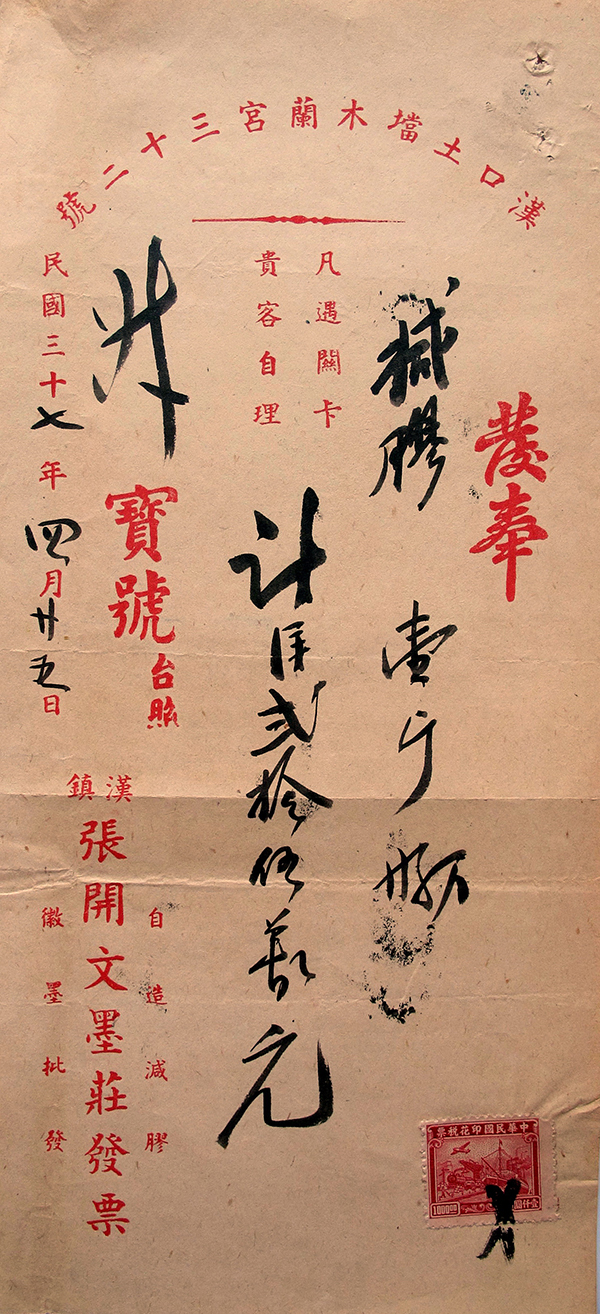 漢口土壋木蘭宮三十二號
發奉
減膠 壹斤
計洋弍拾伍萬元
凡遇關卡
貴客自理
寶號台照
民國三十七年四月廿五日
漢鎮
張開文墨莊發票
自造減膠
徽墨批發
中華民國印花稅票
1000.00